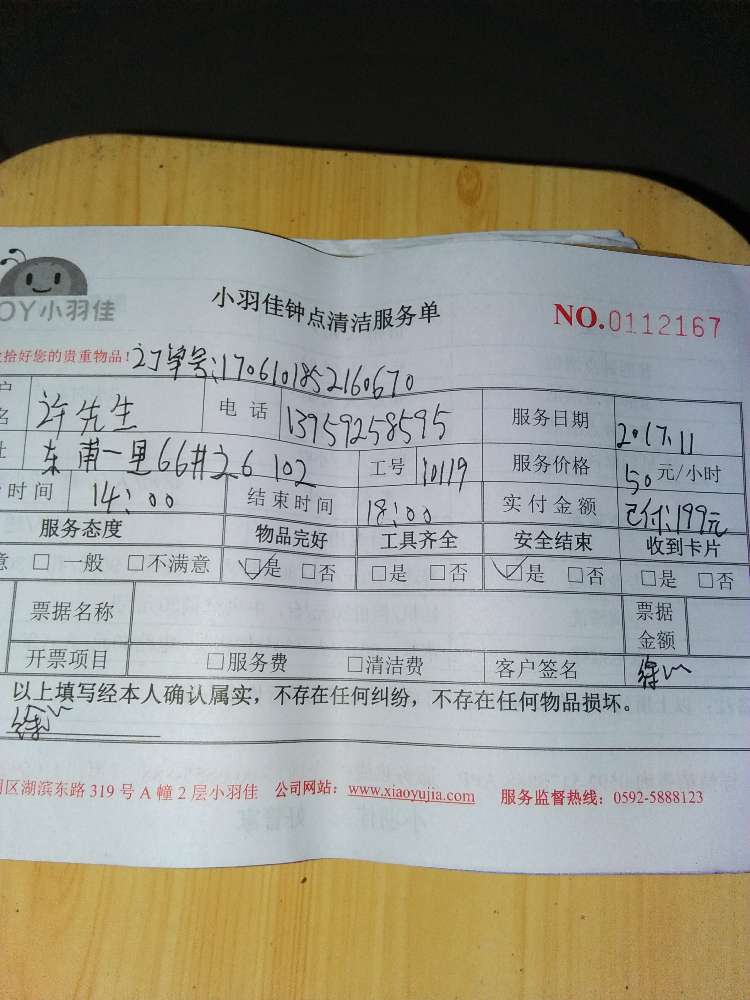 OY小羽佳
小羽佳钟点清洁服务单
NO.0112167
拾好您的贵重物品！订单号:1706101852160670
名 许先生 电话 13959258595 服务日期 2017.11
东 一里66# 102 工号 10119 服务价格 50元/小时
时间 14:00 结束时间 18:00 实付金额 已付:199元
服务态度 物品完好 工具齐全 安全结束 收到卡片
意 □一般 □不满意 ☑是 □否 □是 □否 ☑是 □否 □是 □否
票据名称 票据金额
开票项目 □服务费 □清洁费 客户签名
以上填写经本人确认属实，不存在任何纠纷，不存在任何物品损坏。
区湖滨东路 319 号 A 幢 2 层小羽佳 公司网站：www.xiaoyujia.com 服务监督热线：0592-5888123